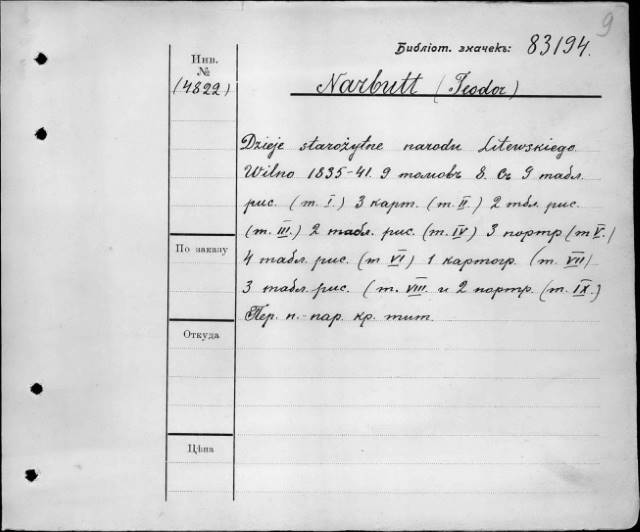 9
Библіот. значекъ: 83194.
Инв.
№
(4822)
Narbutt (Teodor)
Dzieje starożytne narodu Litewskiego.
Wilno 1835-41. 9 томовъ 8. Съ 9 табл.
рис. (т. I.) 3 карт. (т. II.) 2 тбл. рис.
(т. III.) 2 табл. рис. (т. IV) 3 портр (т V.)
4 табл. рис. (т VI) 1 картогр. (т. VII)
3 табл. рис. (т. VIII. и 2 портр. (т. IX.)
Пер. п.-пар. кр. тит.
По заказу
Откуда
Цѣна